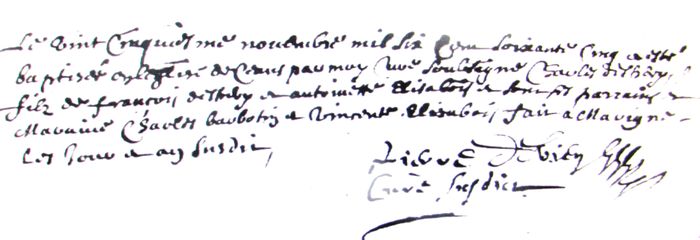 Le vint Cinquiesme novembre mil six Cens soixante Cinq a esté
baptisée en l'eglise de Cerais par moy Curé soubsigné Charles
filz de françois et antoinette Elisabois et sont ses parrains et
Maraine Charles barbotin et vincente Elisabois fait a Marigne
Les Jour et an susdit
Pierre
Curé susdict